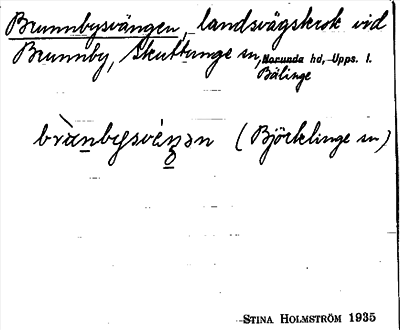 Brunnbysvängen, landsvägskrok vid
Brunnby, Skuttunge sn, Norunda hd, Upps. l.
Bälinge
(Björklinge sn)
STINA HOLMSTRÖM 1935